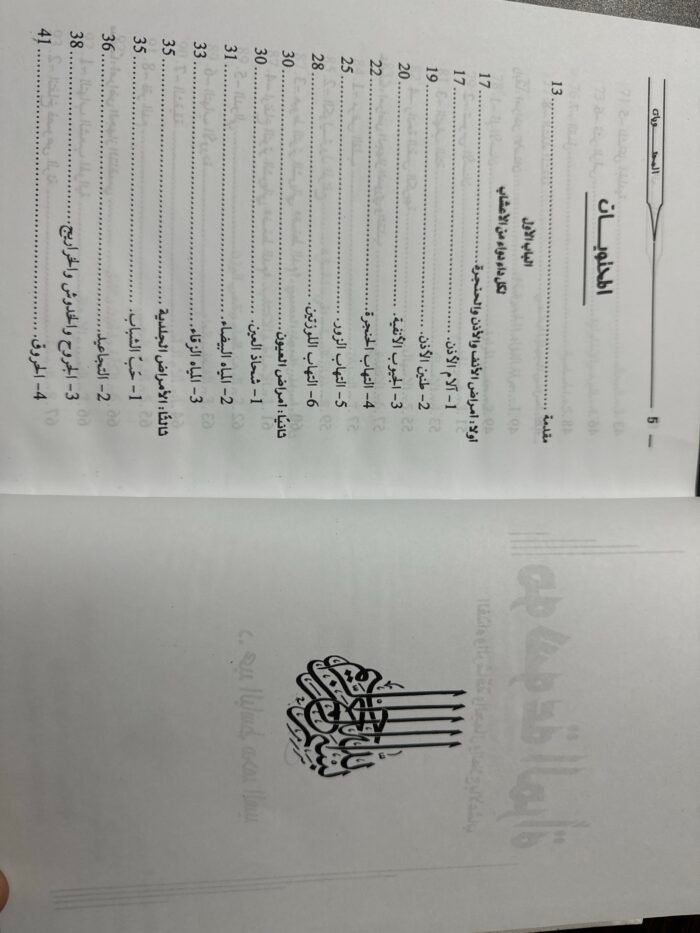 المحتويات
5
المحتويات
مقدمة ........ 13
الباب الأول
لكل داء دواء من الأعشاب
أولا: أمراض الأنف والأذن والحنجرة ........ 17
1- آلام الأذن ........ 17
2- طنين الأذن ........ 19
3- الجيوب الأنفية ........ 20
4- التهاب الحنجرة ........ 22
5- التهاب الزور ........ 25
6- التهاب اللوزتين ........ 28
ثانيًا: أمراض العيون ........ 30
1- شحاذ العين ........ 30
2- المياه البيضاء ........ 31
3- المياه الزرقاء ........ 33
ثالثًا: الأمراض الجلدية ........ 35
1- حَبّ الشباب ........ 35
2- التجاعيد ........ 36
3- الجروح والخدوش والخراريج ........ 38
4- الحروق ........ 41
بسم الله الرحمن الرحيم